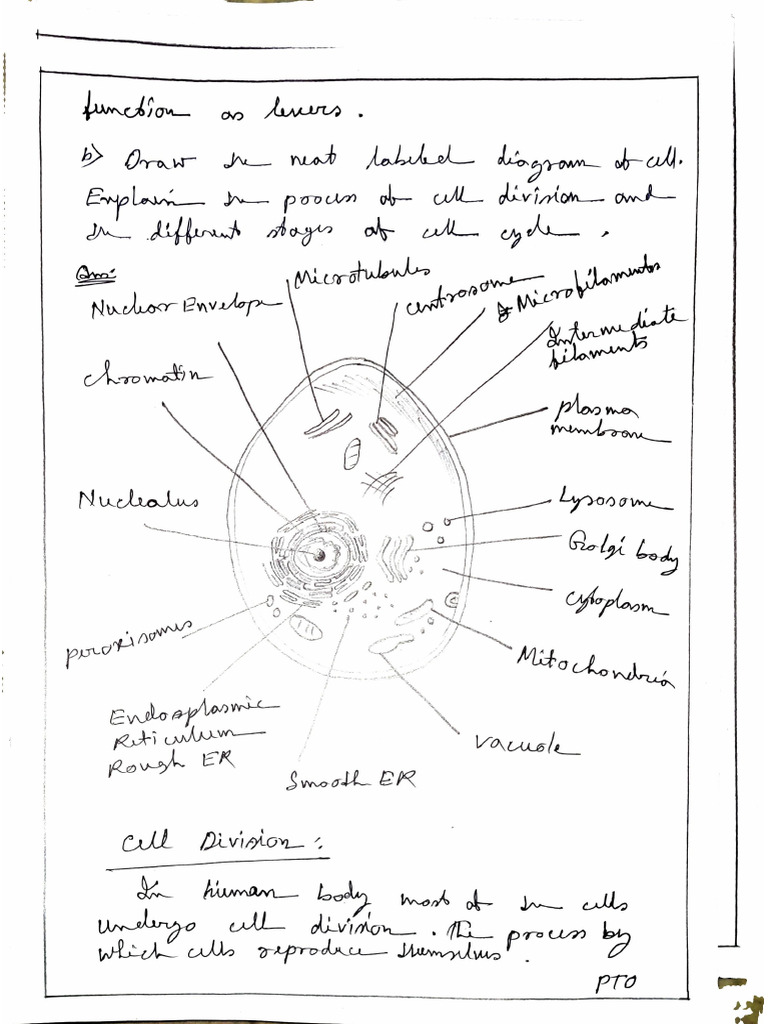 function as levers.
b) Draw the neat labeled diagram of cell.
Explain the process of cell division and
the different stages of cell cycle.
Ans:
Microtubules
Centrosome
Microfilaments
Nuclear Envelope
Intermediate
filaments
Chromatin
plasma
membrane
Nuclealus
Lysosome
Golgi body
cytoplasm
peroxisomes
Mitochondria
Endosplasmic
Reticulum
Rough ER
vacuole
Smooth ER
Cell Division :
In human body most of the cells
undergo cell division. The process by
which cells reproduce themselves.
PTO